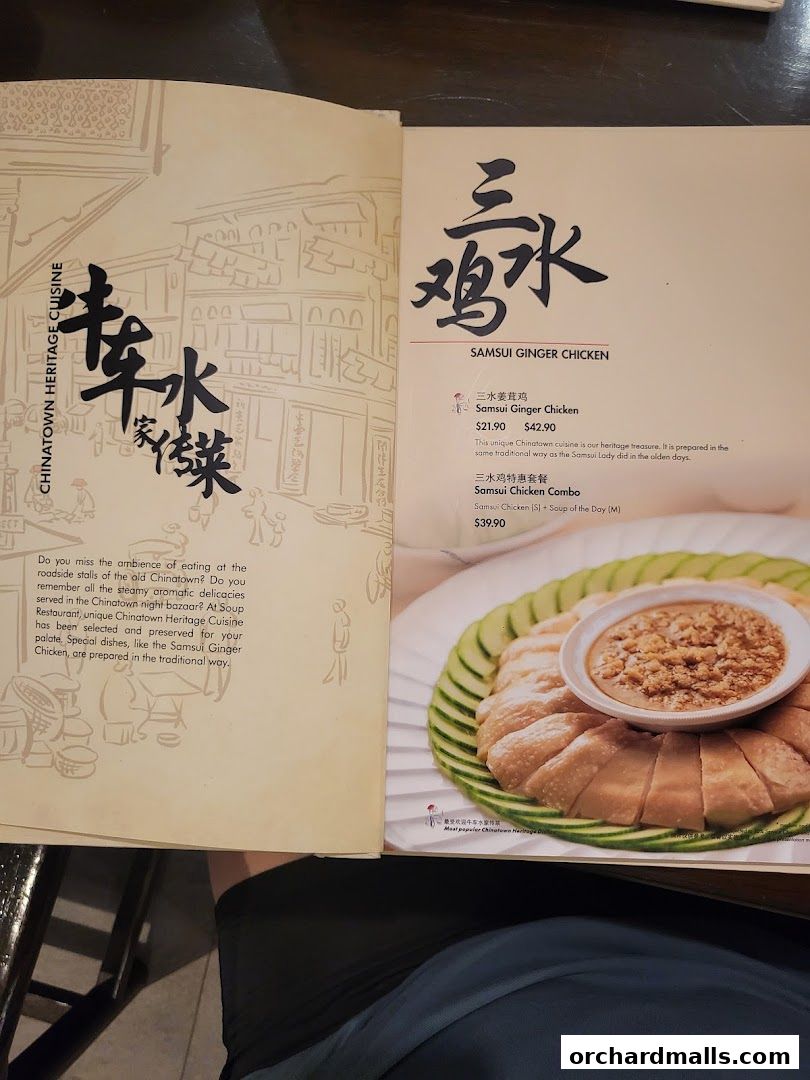 CHINATOWN HERITAGE CUISINE
牛车水
家传菜
Do you miss the ambience of eating at the
roadside stalls of the old Chinatown? Do you
remember all the steamy aromatic delicacies
served in the Chinatown night bazaar? At Soup
Restaurant, unique Chinatown Heritage Cuisine
has been selected and preserved for your
palate. Special dishes, like the Samsui Ginger
Chicken, are prepared in the traditional way.
三水
鸡
SAMSUI GINGER CHICKEN
三水姜茸鸡
Samsui Ginger Chicken
$21.90 $42.90
This unique Chinatown cuisine is our heritage treasure. It is prepared in the
same traditional way as the Samsui Lady did in the olden days.
三水鸡特惠套餐
Samsui Chicken Combo
Samsui Chicken (S) + Soup of the Day (M)
$39.90
最受欢迎牛车水家传菜
Most popular Chinatown Heritage
orchardmalls.com